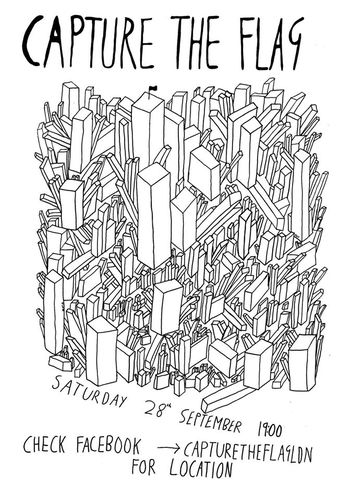 CAPTURE THE FLAG
SATURDAY 28TH SEPTEMBER 1900
CHECK FACEBOOK → CAPTURETHEFLAGLDN
FOR LOCATION